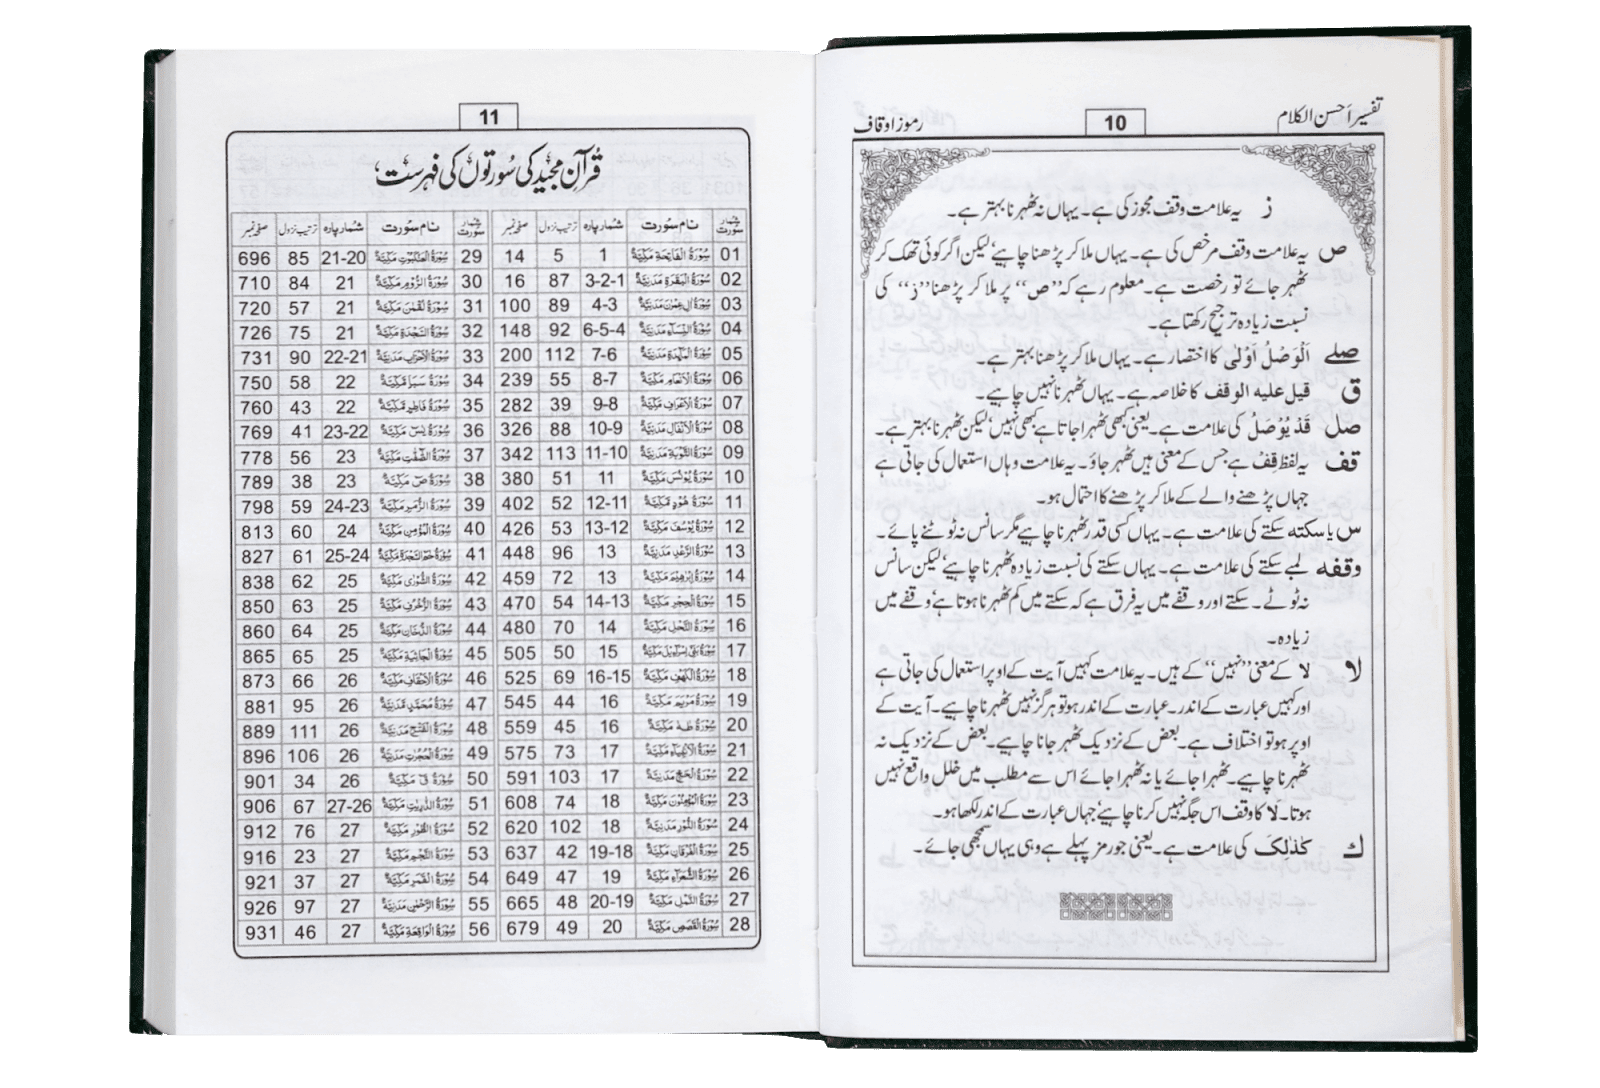 تفسیر احسن الکلام
10
رموز اوقاف
ز یہ علامت وقف مجوز کی ہے۔ یہاں نہ ٹھہرنا بہتر ہے۔
ص یہ علامت وقف مرخص کی ہے۔ یہاں ملا کر پڑھنا چاہیے‘ لیکن اگر کوئی تھک کر
ٹھہر جائے تو رخصت ہے۔ معلوم رہے کہ ’’ص‘‘ پر ملا کر پڑھنا ’’ز‘‘ کی
نسبت زیادہ ترجیح رکھتا ہے۔
صلے اَلْوَصْلُ اَوْلٰی کا اختصار ہے۔ یہاں ملا کر پڑھنا بہتر ہے۔
ق قیل علیہ الوقف کا خلاصہ ہے۔ یہاں ٹھہرنا نہیں چاہیے۔
صل قَدْ یُوْصَلُ کی علامت ہے۔ یعنی کبھی ٹھہرا جاتا ہے کبھی نہیں‘ لیکن ٹھہرنا بہتر ہے۔
قف یہ لفظ قِفْ ہے جس کے معنی ہیں ٹھہر جاؤ۔ یہ علامت وہاں استعمال کی جاتی ہے
جہاں پڑھنے والے کے ملا کر پڑھنے کا احتمال ہو۔
س یا سکتہ سکتے کی علامت ہے۔ یہاں کسی قدر ٹھہرنا چاہیے مگر سانس نہ ٹوٹنے پائے۔
وقفہ لمبے سکتے کی علامت ہے۔ یہاں سکتے کی نسبت زیادہ ٹھہرنا چاہیے‘ لیکن سانس
نہ ٹوٹے۔ سکتے اور وقفے میں یہ فرق ہے کہ سکتے میں کم ٹھہرنا ہوتا ہے‘ وقفے میں
زیادہ۔
لا لا کے معنی ’’نہیں‘‘ کے ہیں۔ یہ علامت کہیں آیت کے اوپر استعمال کی جاتی ہے
اور کہیں عبارت کے اندر۔ عبارت کے اندر ہو تو ہرگز نہیں ٹھہرنا چاہیے۔ آیت کے
اوپر ہو تو اختلاف ہے۔ بعض کے نزدیک ٹھہر جانا چاہیے۔ بعض کے نزدیک نہ
ٹھہرنا چاہیے۔ ٹھہرا جائے یا نہ ٹھہرا جائے اس سے مطلب میں خلل واقع نہیں
ہوتا۔ لَا کا وقف اس جگہ نہیں کرنا چاہیے‘ جہاں عبارت کے اندر لکھا ہو۔
ک کذٰلِکَ کی علامت ہے۔ یعنی جو رمز پہلے ہے وہی یہاں سمجھی جائے۔
11
قُرآنِ مجید کی سُورتوں کی فہرست
شمار سورت نام سُورت شمار پارہ ترتیب نزول صفحہ نمبر شمار سورت نام سُورت شمار پارہ ترتیب نزول صفحہ نمبر
01 سُوْرَةُ الْفَاتِحَةِ مَكِّيَّةٌ 1 5 14 29 سُوْرَةُ الْعَنْكَبُوْتِ مَكِّيَّةٌ 21-20 85 696
02 سُوْرَةُ الْبَقَرَةِ مَدَنِيَّةٌ 3-2-1 87 16 30 سُوْرَةُ الرُّوْمِ مَكِّيَّةٌ 21 84 710
03 سُوْرَةُ اٰلِ عِمْرٰنَ مَدَنِيَّةٌ 4-3 89 100 31 سُوْرَةُ لُقْمٰنَ مَكِّيَّةٌ 21 57 720
04 سُوْرَةُ النِّسَآءِ مَدَنِيَّةٌ 6-5-4 92 148 32 سُوْرَةُ السَّجْدَةِ مَكِّيَّةٌ 21 75 726
05 سُوْرَةُ الْمَآئِدَةِ مَدَنِيَّةٌ 7-6 112 200 33 سُوْرَةُ الْاَحْزَابِ مَدَنِيَّةٌ 22-21 90 731
06 سُوْرَةُ الْاَنْعَامِ مَكِّيَّةٌ 8-7 55 239 34 سُوْرَةُ سَبَاٍ مَكِّيَّةٌ 22 58 750
07 سُوْرَةُ الْاَعْرَافِ مَكِّيَّةٌ 9-8 39 282 35 سُوْرَةُ فَاطِرٍ مَكِّيَّةٌ 22 43 760
08 سُوْرَةُ الْاَنْفَالِ مَدَنِيَّةٌ 10-9 88 326 36 سُوْرَةُ يٰسٓ مَكِّيَّةٌ 23-22 41 769
09 سُوْرَةُ التَّوْبَةِ مَدَنِيَّةٌ 11-10 113 342 37 سُوْرَةُ الصّٰٓفّٰتِ مَكِّيَّةٌ 23 56 778
10 سُوْرَةُ يُوْنُسَ مَكِّيَّةٌ 11 51 380 38 سُوْرَةُ صٓ مَكِّيَّةٌ 23 38 789
11 سُوْرَةُ هُوْدٍ مَكِّيَّةٌ 12-11 52 402 39 سُوْرَةُ الزُّمَرِ مَكِّيَّةٌ 24-23 59 798
12 سُوْرَةُ يُوْسُفَ مَكِّيَّةٌ 13-12 53 426 40 سُوْرَةُ الْمُؤْمِنِ مَكِّيَّةٌ 24 60 813
13 سُوْرَةُ الرَّعْدِ مَدَنِيَّةٌ 13 96 448 41 سُوْرَةُ حٰمٓ السَّجْدَةِ مَكِّيَّةٌ 25-24 61 827
14 سُوْرَةُ اِبْرٰهِيْمَ مَكِّيَّةٌ 13 72 459 42 سُوْرَةُ الشُّوْرٰى مَكِّيَّةٌ 25 62 838
15 سُوْرَةُ الْحِجْرِ مَكِّيَّةٌ 14-13 54 470 43 سُوْرَةُ الزُّخْرُفِ مَكِّيَّةٌ 25 63 850
16 سُوْرَةُ النَّحْلِ مَكِّيَّةٌ 14 70 480 44 سُوْرَةُ الدُّخَانِ مَكِّيَّةٌ 25 64 860
17 سُوْرَةُ بَنِىْٓ اِسْرَآءِيْلَ مَكِّيَّةٌ 15 50 505 45 سُوْرَةُ الْجَاثِيَةِ مَكِّيَّةٌ 25 65 865
18 سُوْرَةُ الْكَهْفِ مَكِّيَّةٌ 16-15 69 525 46 سُوْرَةُ الْاَحْقَافِ مَكِّيَّةٌ 26 66 873
19 سُوْرَةُ مَرْيَمَ مَكِّيَّةٌ 16 44 545 47 سُوْرَةُ مُحَمَّدٍ مَدَنِيَّةٌ 26 95 881
20 سُوْرَةُ طٰهٰ مَكِّيَّةٌ 16 45 559 48 سُوْرَةُ الْفَتْحِ مَدَنِيَّةٌ 26 111 889
21 سُوْرَةُ الْاَنْۢبِيَآءِ مَكِّيَّةٌ 17 73 575 49 سُوْرَةُ الْحُجُرٰتِ مَدَنِيَّةٌ 26 106 896
22 سُوْرَةُ الْحَجِّ مَدَنِيَّةٌ 17 103 591 50 سُوْرَةُ قٓ مَكِّيَّةٌ 26 34 901
23 سُوْرَةُ الْمُؤْمِنُوْنَ مَكِّيَّةٌ 18 74 608 51 سُوْرَةُ الذّٰرِيٰتِ مَكِّيَّةٌ 27-26 67 906
24 سُوْرَةُ النُّوْرِ مَدَنِيَّةٌ 18 102 620 52 سُوْرَةُ الطُّوْرِ مَكِّيَّةٌ 27 76 912
25 سُوْرَةُ الْفُرْقَانِ مَكِّيَّةٌ 19-18 42 637 53 سُوْرَةُ النَّجْمِ مَكِّيَّةٌ 27 23 916
26 سُوْرَةُ الشُّعَرَآءِ مَكِّيَّةٌ 19 47 649 54 سُوْرَةُ الْقَمَرِ مَكِّيَّةٌ 27 37 921
27 سُوْرَةُ النَّمْلِ مَكِّيَّةٌ 20-19 48 665 55 سُوْرَةُ الرَّحْمٰنِ مَدَنِيَّةٌ 27 97 926
28 سُوْرَةُ الْقَصَصِ مَكِّيَّةٌ 20 49 679 56 سُوْرَةُ الْوَاقِعَةِ مَكِّيَّةٌ 27 46 931